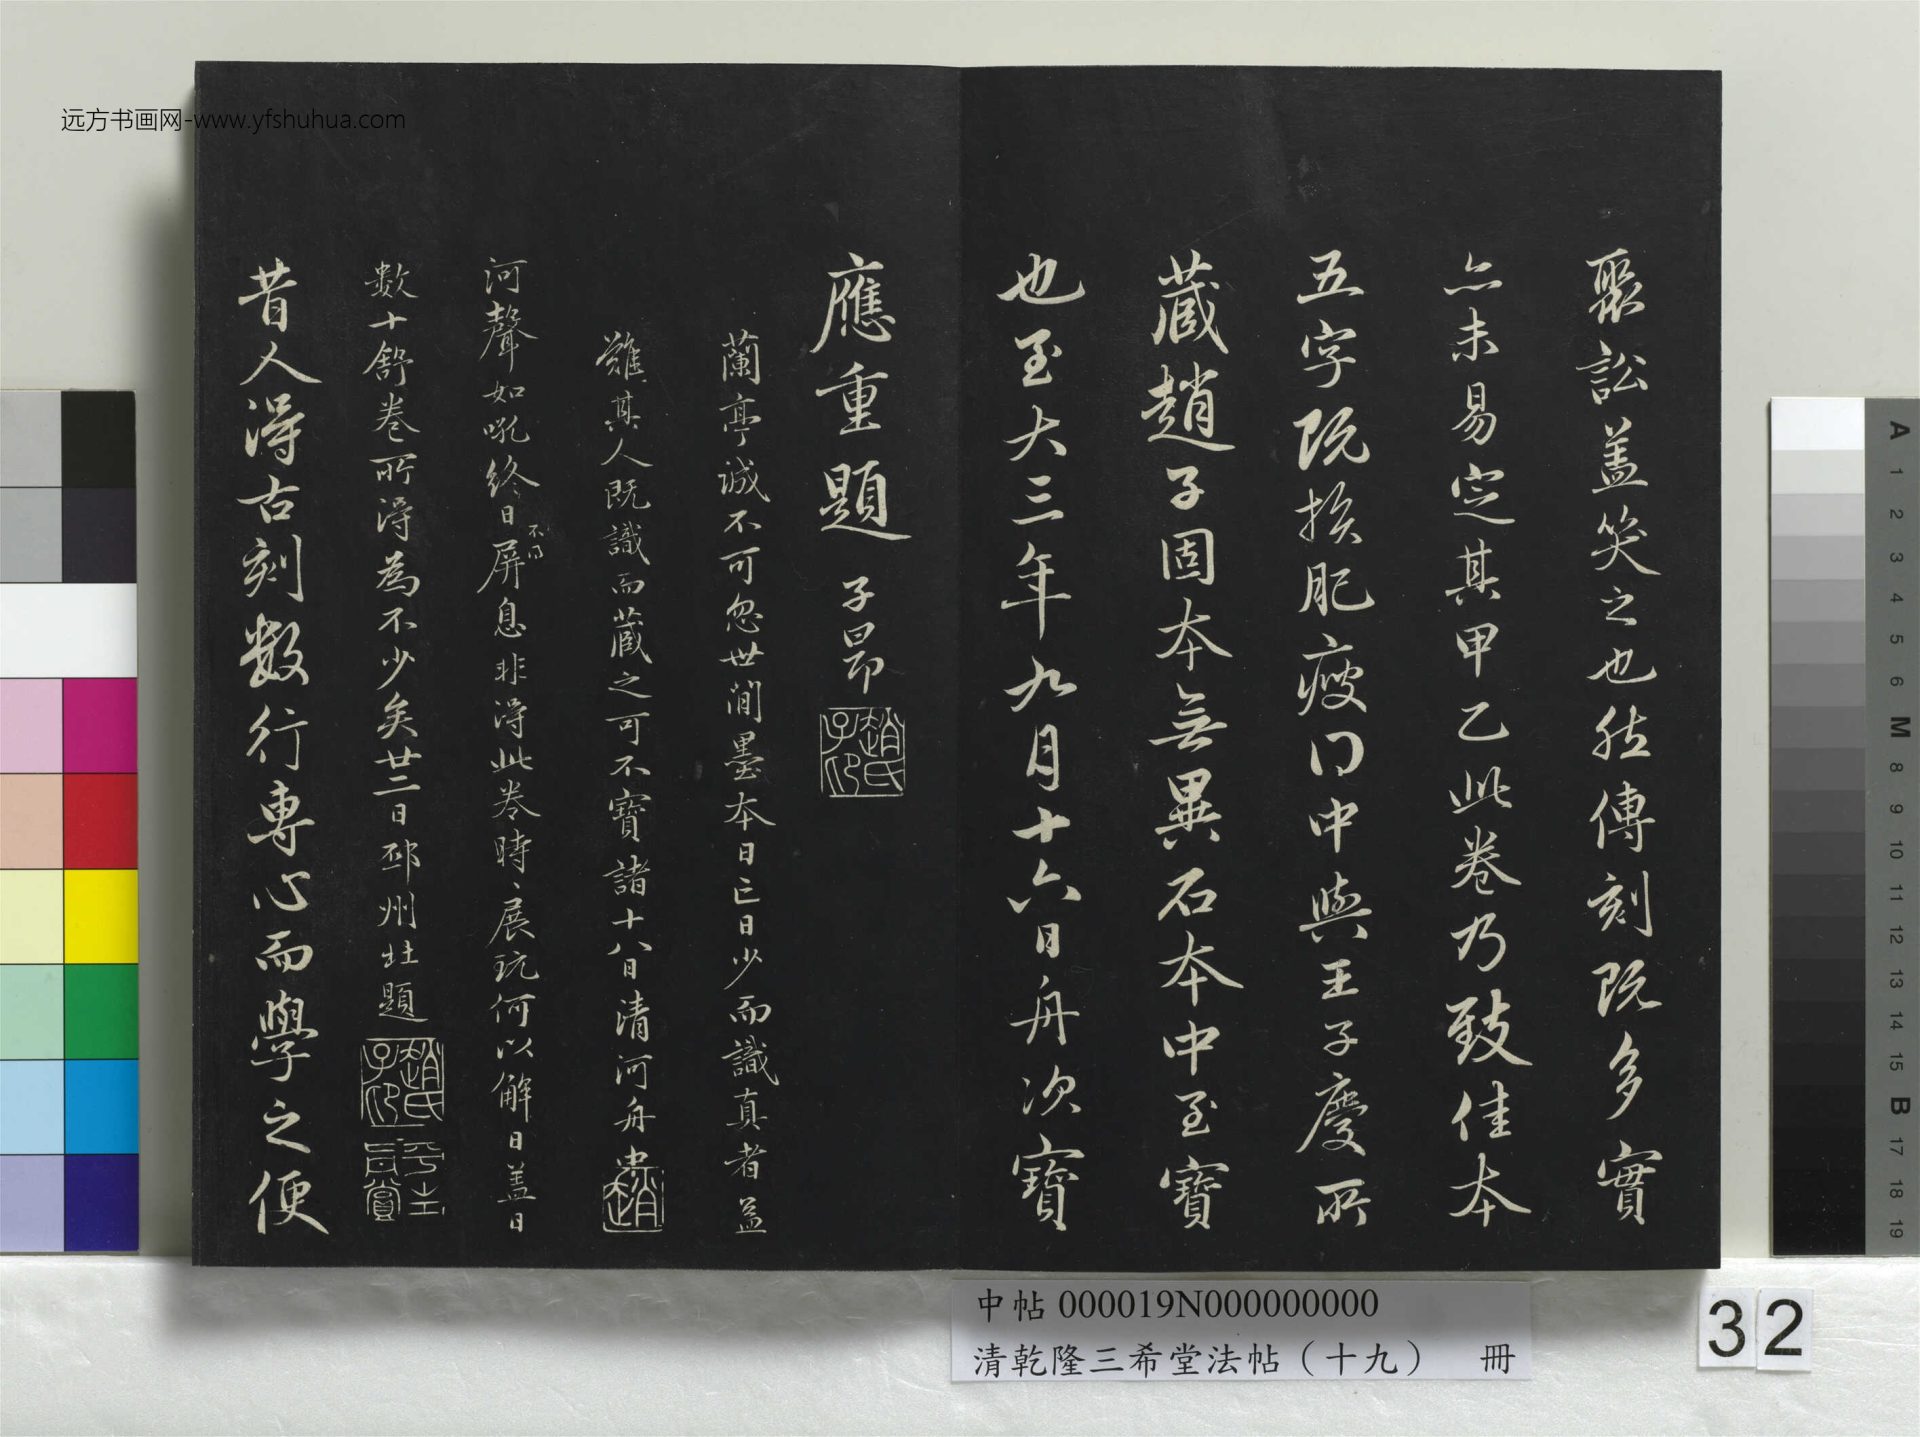 聚訟蓋笑之也然傳刻既多實
亦未易定其甲乙此卷乃致佳本
五字既損肥瘦得中與王子慶所
藏趙子固本無異石本中至寶
也至大三年九月十六日舟次寶
應重題 子昂
趙氏子印
蘭亭誠不可忽世間墨本日亡日少而識真者益
難其人既識而藏之可不寶諸十八日清河舟中
趙
河聲如吼終日屏息非得此卷時展玩何以解日蓋日
不得
數十舒卷所得為不少矣廿二日邳州北題
趙氏子印
昔人得古刻數行專心而學之便
远方书画网-www.yfshuhua.com
中帖 000019N000000000
清乾隆三希堂法帖（十九） 冊
32
A 1 2 3 4 5 6 M 8 9 10 11 12 13 14 15 B 17 18 19